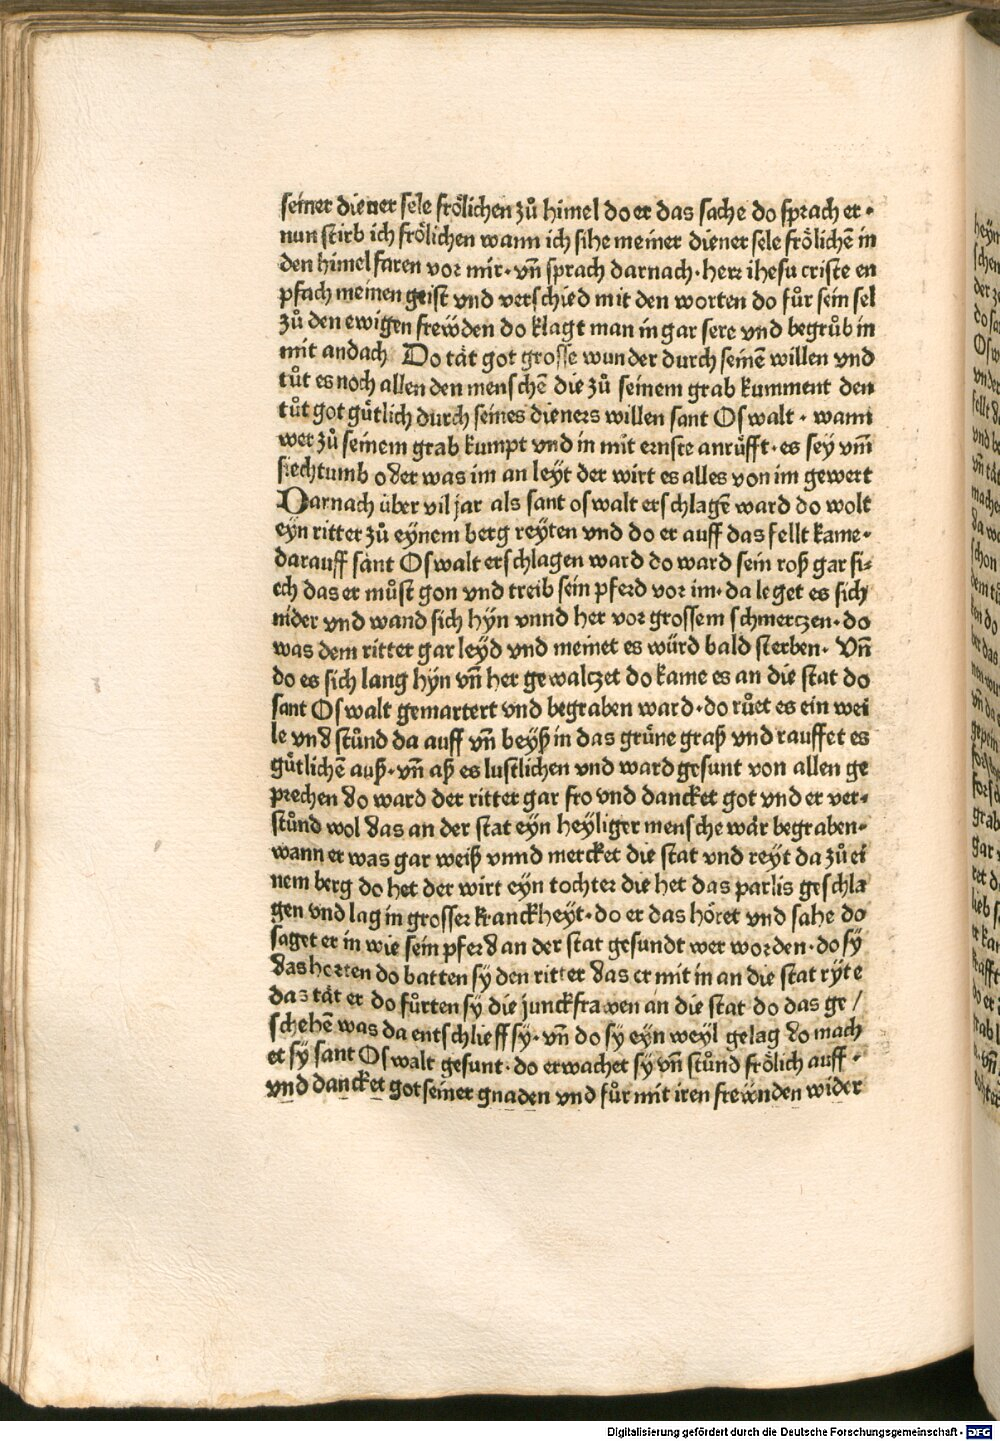 seiner diener sele frölichen zů himel do er das sache do sprach er·
nun stirb ich frölichen wann ich sihe meiner diener sele frölichē in
den himel faren vor mir· vn̄ sprach darnach· herr ihesu criste en
pfach meinen geist vnd verschied mit den worten do fůr sein sel
zů den ewigen frewden do klagt man in gar sere vnd begrůb in
mit andach Do tät got grosse wunder durch seinē willen vnd
tůt es noch allen den menschē die zů seinem grab kumment den
tůt got gütlich durch seines dieners willen sant Oswalt · wann
wer zů seinem grab kumpt vnd in mit ernste anrůfft· es sey vm̄
siechtumb oder was im an leyt der wirt es alles von im gewert
Darnach über vil jar als sant oswalt erschlagē ward do wolt
eyn ritter zů eynem berg reyten vnd do er auff das fellt kame·
darauff sant Oswalt erschlagen ward do ward sein roß gar si⸗
ech das er můst gon vnd treib sein pferd vor im· da leget es sich
nider vnd wand sich hÿn vnnd her vor grossem schmertzen· do
was dem ritter gar leÿd vnd meinet es würd bald sterben· Vn̄
do es sich lang hÿn vn̄ her gewalczet do kame es an die stat do
sant Oswalt gemartert vnd begraben ward· do růet es ein wei
le vnd stůnd da auff vn̄ beÿß in das grüne graß vnd rauffet es
gütlichē auß· vn̄ aß es lustlichen vnd ward gesunt von allen ge
prechen do ward der ritter gar fro vnd dancket got vnd er ver⸗
stůnd wol das an der stat eÿn heÿliger mensche wär begraben·
wann er was gar weiß vnnd mercket die stat vnd reÿt da zů ei
nem berg do het der wirt eÿn tochter die het das parlis geschla
gen vnd lag in grosser kranckheÿt· do er das höret vnd sahe do
saget er in wie sein pferd an der stat gesundt wer worden· do sÿ
das horten do batten sÿ den ritter das er mit in an die stat rÿte
das tät er do fůrten sÿ die junckfrawen an die stat do das ge /
schehē was da entschlieff sÿ· vn̄ do sÿ eÿn weÿl gelag do mach
et sÿ sant Oswalt gesunt· do erwachet sÿ vn̄ stůnd frölich auff·
vnd dancket got seiner gnaden vnd fůr mit iren freẅnden wider
Digitalisierung gefördert durch die Deutsche Forschungsgemeinschaft - DFG